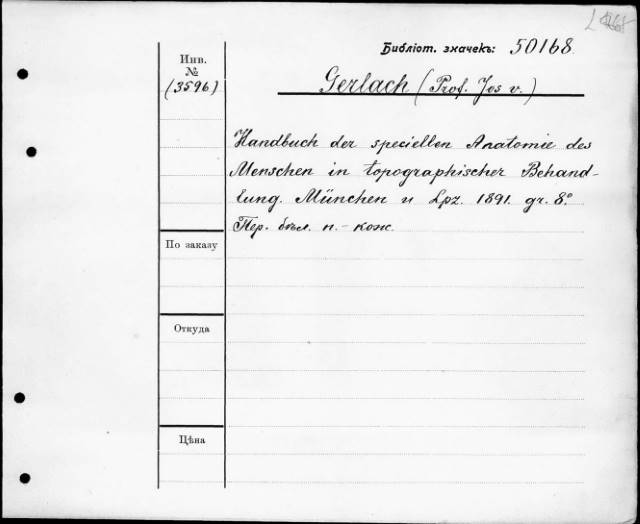 Библіот. значекъ: 50168
Инв.
№
(3596)
Gerlach (Prof. Jos v.)
Handbuch der speciellen Anatomie des
Menschen in topographischer Behand-
lung. München u Lpz. 1891. gr. 8°
Пер. бѣл. п.-кож.
По заказу
Откуда
Цѣна